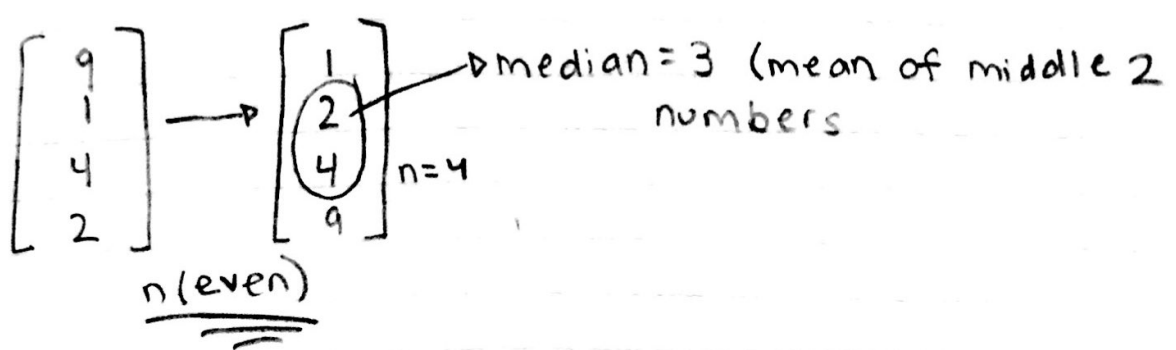 9
1
4
2
1
2
4
9
n=4
median = 3 (mean of middle 2
numbers
n (even)